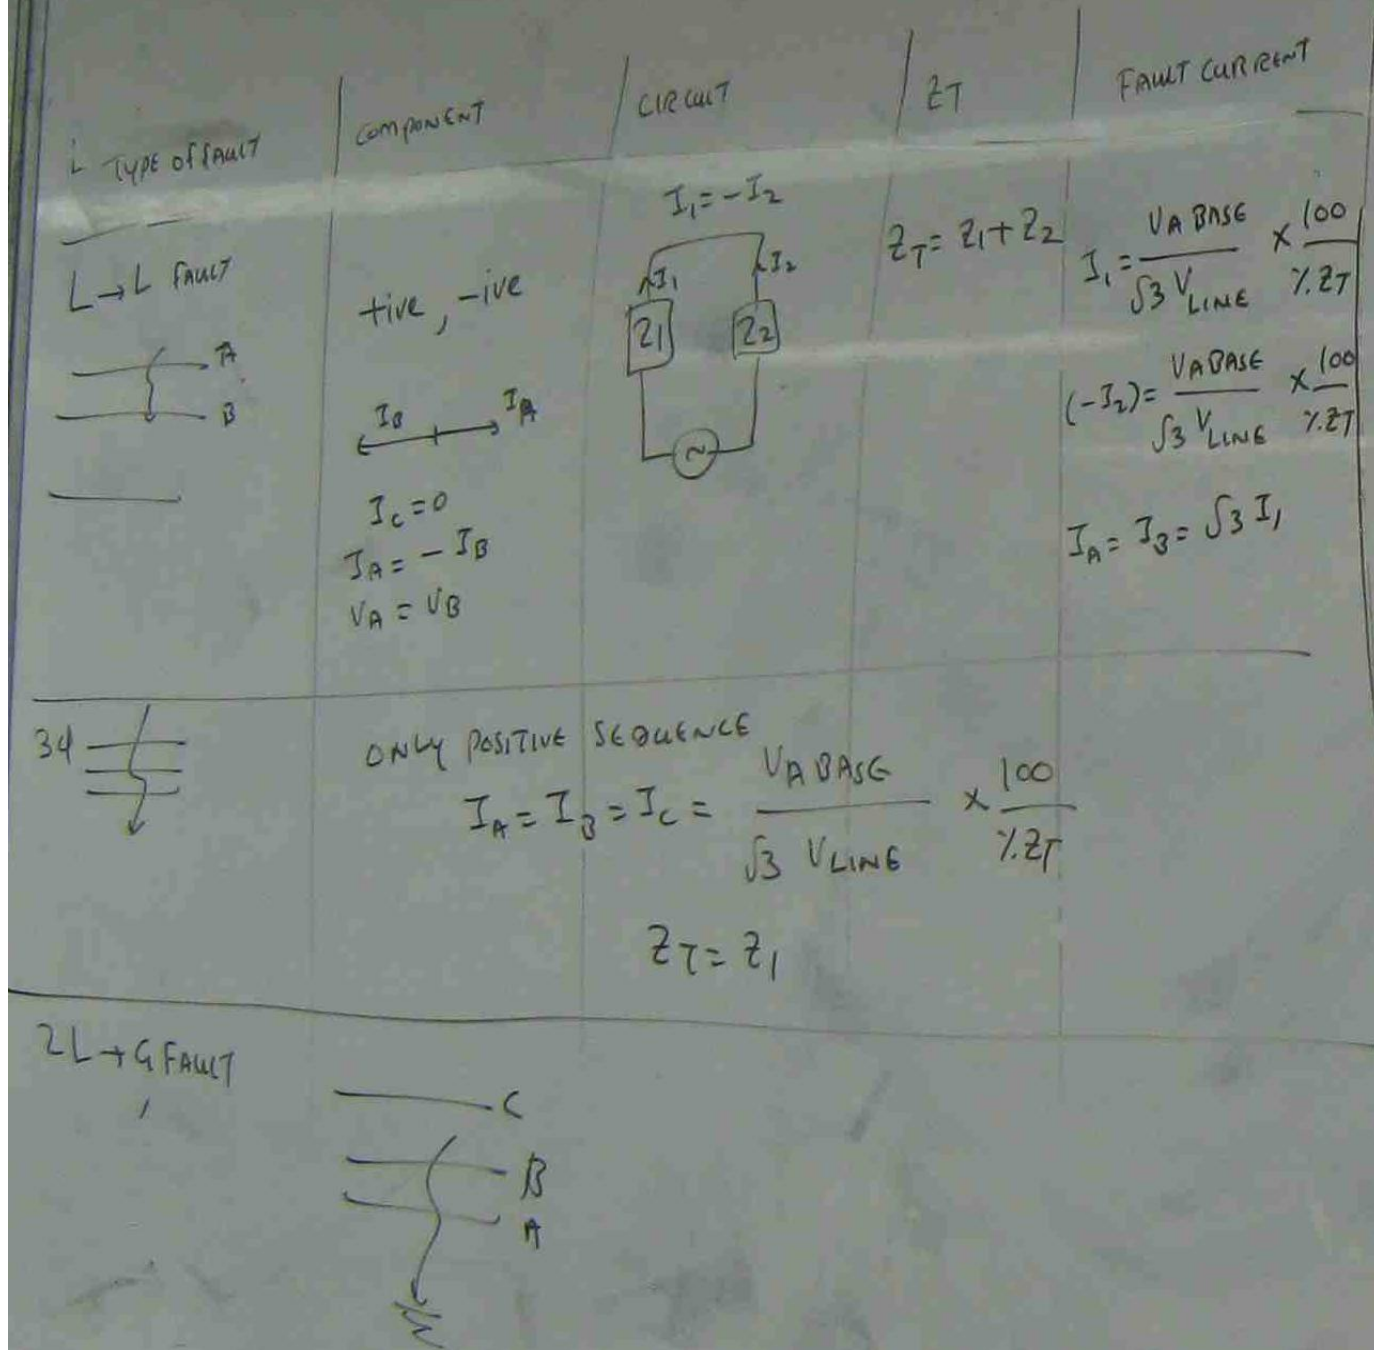 TYPE OF FAULT
COMPONENT
CIRCUIT
ZT
FAULT CURRENT
L→L FAULT
A
B
+ive, -ive
IB IA
IC = 0
IA = - IB
VA = VB
I1 = -I2
I1 I2
Z1 Z2
~
ZT = Z1 + Z2
I1 = VA BASE / √3 VLINE × 100 / %ZT
(-I2) = VA BASE / √3 VLINE × 100 / %ZT
IA = IB = √3 I1
3ϕ
ONLY POSITIVE SEQUENCE
IA = IB = IC = VA BASE / √3 VLINE × 100 / %ZT
ZT = Z1
2L→G FAULT
C
B
A